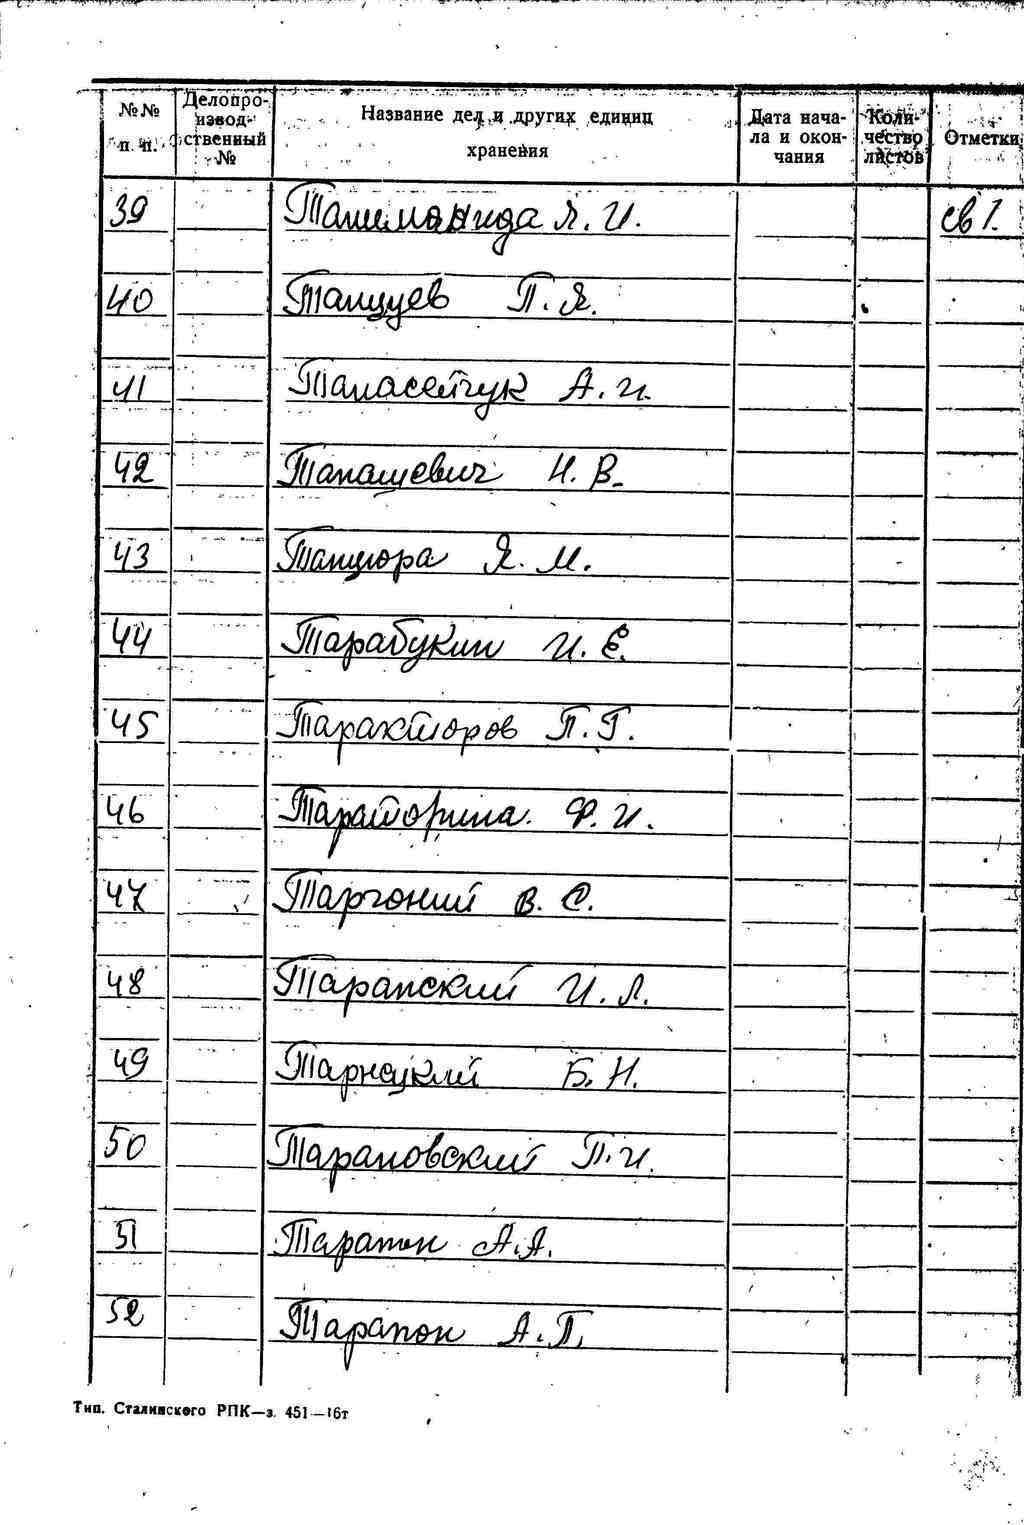 №№ п. п. Делопроизвод-ственный № Название дел и других единиц хранения Дата нача-ла и окон-чания Коли-чество листов Отметки
39 Л. И. св 1.
40 Танцуев П. Я.
41 Танасейчук А. И.
42 Танашевич Н. В.
43 Танцюра Я. М.
44 Тарабукин И. Е.
45 П. Г.
46 Ф. И.
47 Таргоний В. С.
48 Таранский И. Л.
49 Тарнацкий Б. Н.
50 Тарановский П. И.
51 Тарапон А. А.
52 Тарапон А. П.
Тип. Сталинского РПК—з. 451—16т